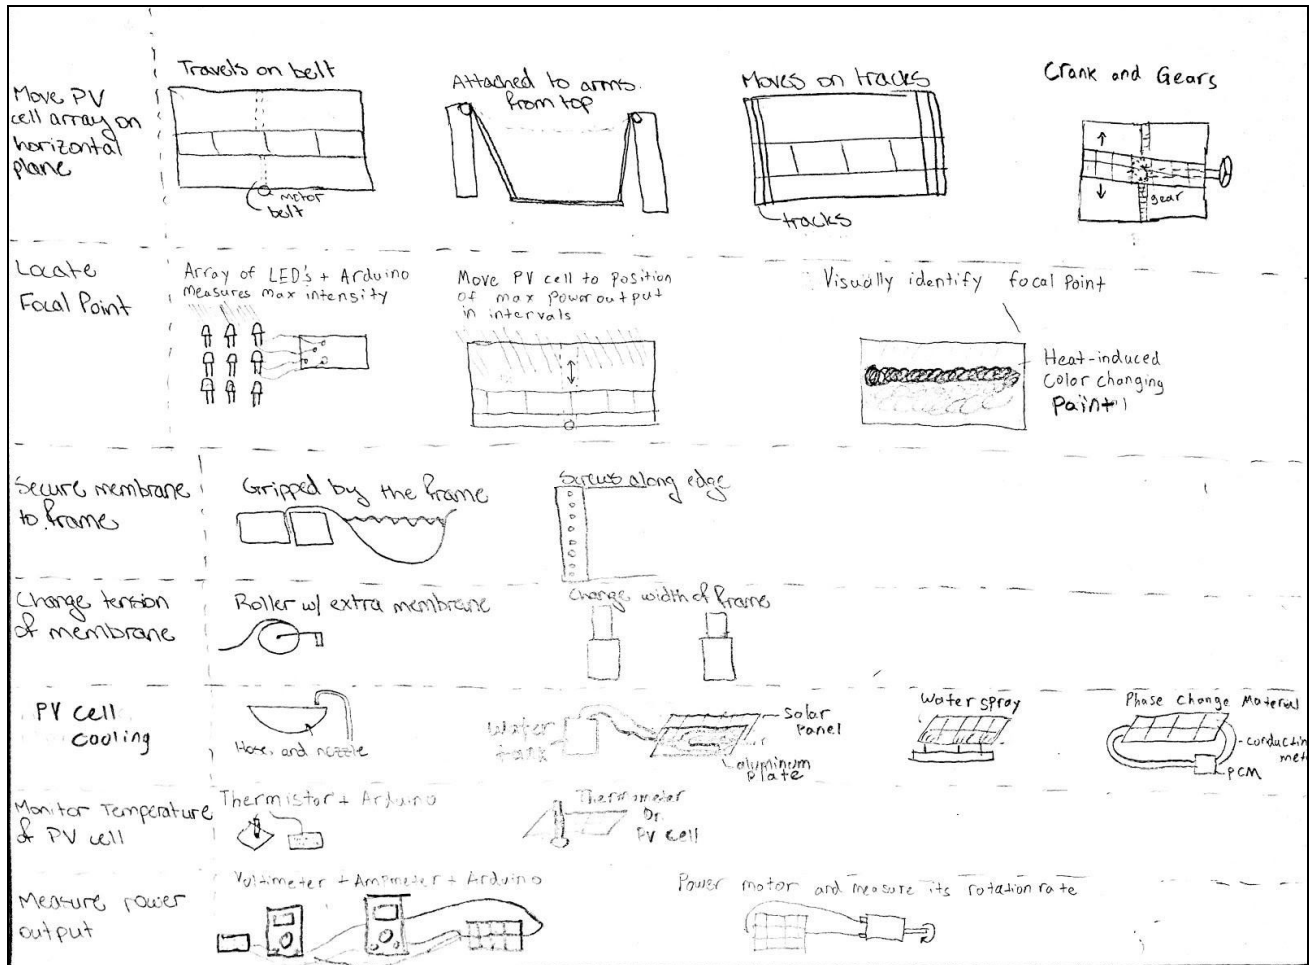 Move PV
cell array on
horizontal
plane
Travels on belt
motor
belt
Attached to arms
from top
Moves on tracks
tracks
Crank and Gears
gear
Locate
Focal Point
Array of LED's + Arduino
measures max intensity
Move PV cell to position
of max power output
in intervals
Visually identify focal point
Heat-induced
Color changing
Paint
Secure membrane
to frame
Gripped by the frame
Screws along edge
Change tension
of membrane
Roller w/ extra membrane
Change width of frame
PV cell
cooling
Hose and nozzle
Water
tank
Solar
Panel
aluminum
Plate
Water spray
Phase Change Material
conducting
PCM
Monitor Temperature
of PV cell
Thermistor + Arduino
Thermometer
PV cell
Measure power
output
Voltimeter + Ampmeter + Arduino
Power motor and measure its rotation rate